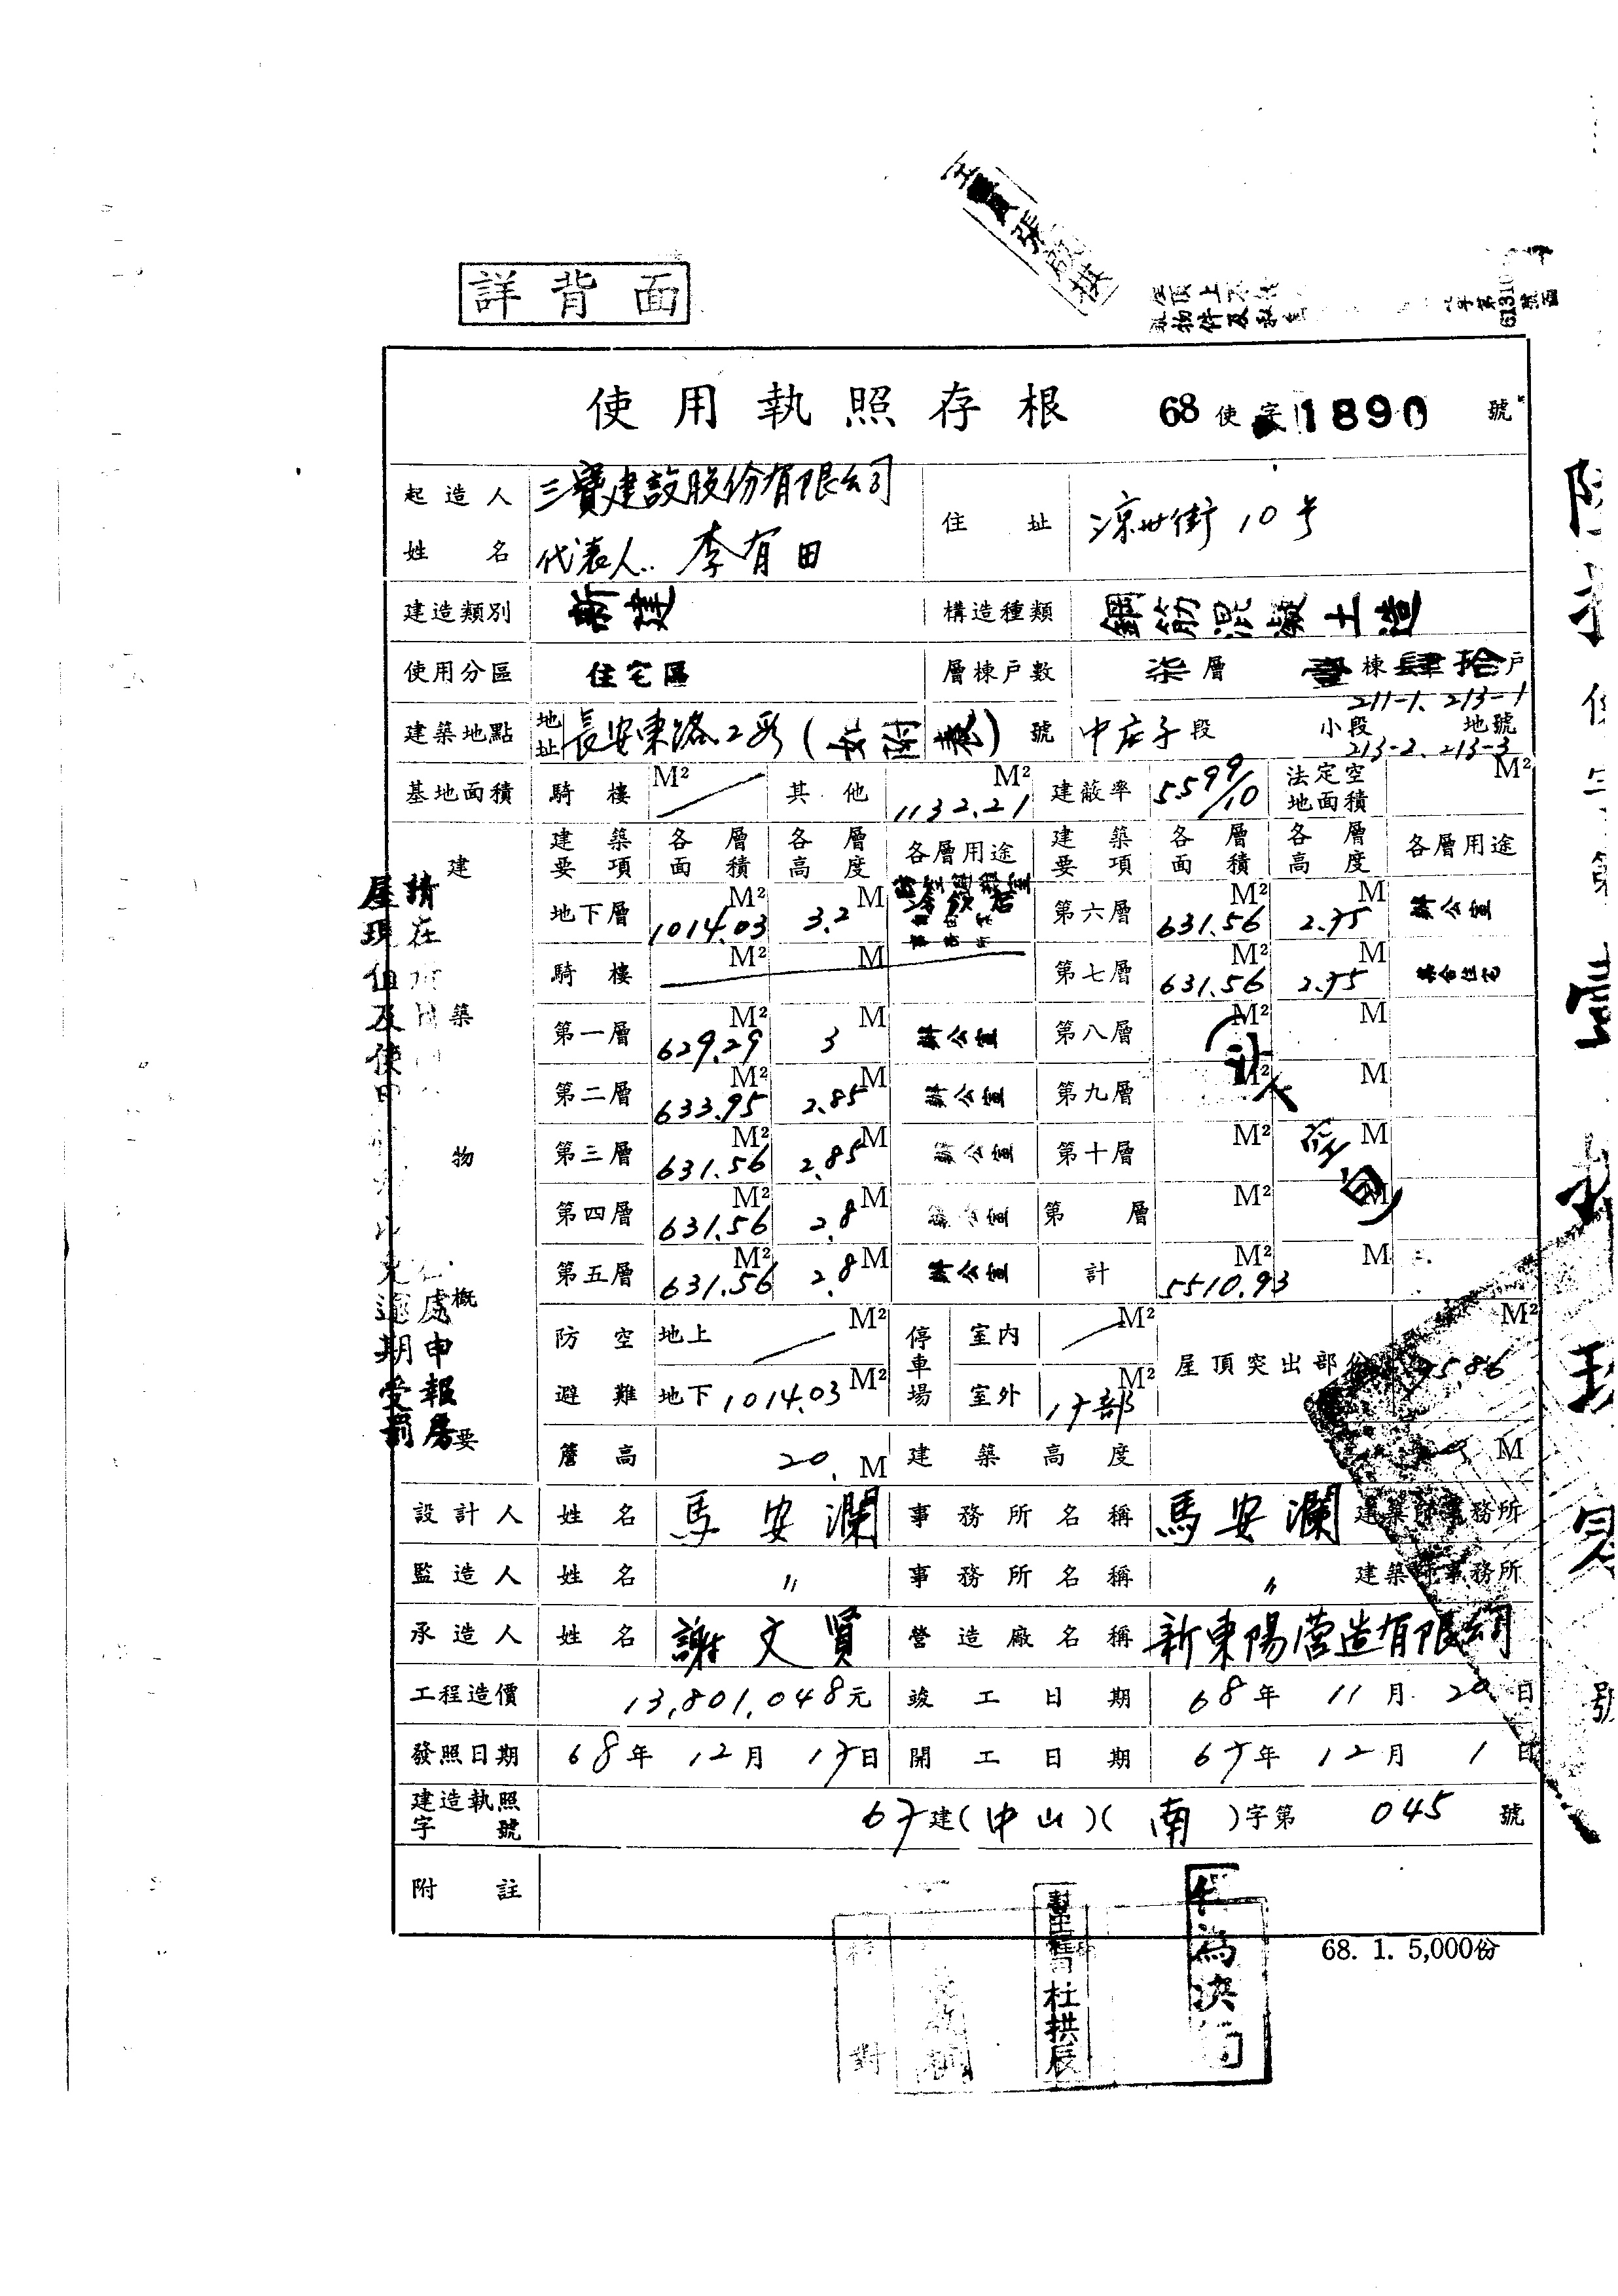 詳背面
使用執照存根 68使字1890號
起造人姓名 三寶建設股份有限公司 代表人 李有田 住址 涼州街10号
建造類別 新建 構造種類 鋼筋混凝土造
使用分區 住宅區 層棟戶數 柒層 壹棟肆拾戶
建築地點 地址 長安東路2段( )號 中庄子段 小段 211-1、213-1 213-2、213-3 地號
基地面積 騎樓 M² 其他 1132.21 M² 建蔽率 法定空地面積 M²
建築物概要
建築要項 各層面積 各層高度 各層用途 建築要項 各層面積 各層高度 各層用途
地下層 1014.03 M² 3.2 M 第六層 631.56 M² 2.75 M 辦公室
騎樓 M² M 第七層 631.56 M² 2.75 M 集合住宅
第一層 629.29 M² 3 M 辦公室 第八層 M² M
第二層 633.95 M² 2.85 M 辦公室 第九層 M² M
第三層 631.56 M² 2.85 M 辦公室 第十層 M² M
第四層 631.56 M² 2.8 M 辦公室 第 層 M² M
第五層 631.56 M² 2.8 M 辦公室 計 5510.93 M² M
(以下空白)
防空避難 地上 M² 停車場 室內 M² 屋頂突出部份 M²
地下 1014.03 M² 室外 17部 M²
簷高 20. M 建築高度 M
設計人 姓名 馬安瀾 事務所名稱 馬安瀾 建築師事務所
監造人 姓名 〃 事務所名稱 〃 建築師事務所
承造人 姓名 謝文賢 營造廠名稱 新東陽營造有限公司
工程造價 13,801,048元 竣工日期 68年11月20日
發照日期 68年12月17日 開工日期 67年12月1日
建造執照字號 67建(中山)(南)字第045號
附註
68. 1. 5,000份
杜拱辰